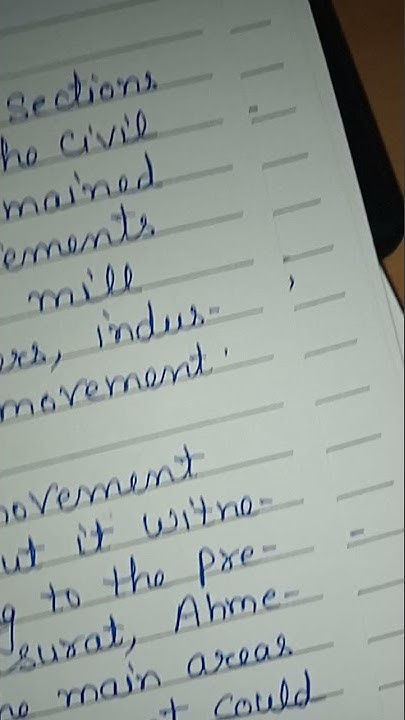 sections
he civil
mained
ements
mill
ors, indus-
movement.
ovement
ut it witne-
g to the pre-
surat, Ahme-
he main areas
t could